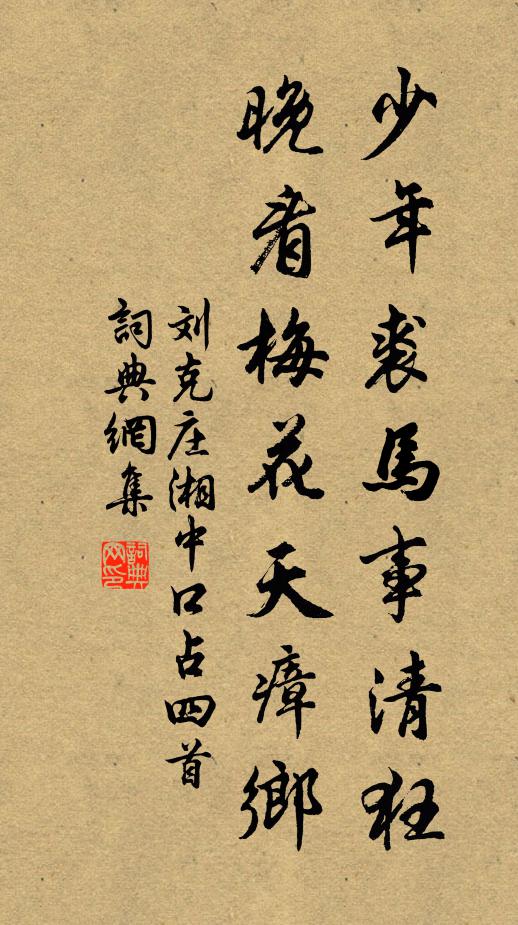 少年裘馬事清狂
晚看梅花天瘴鄉
刘克庄湘中口占四首
詞典網集
詞典網印